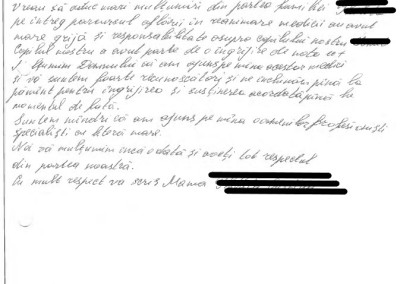 Vreau să aduc mari mulțumiri din partea familiei
pe întreg parcursul aflării în reanimare medicii au avut
mare grijă și responsabilitate asupra copilului nostru
Copilul nostru a avut parte de o îngrijire de nota a +
). Mumim Domnului că am ajuns pe mîna acestor medici
și vă suntem foarte recunoscători și ne închinăm pînă la
pămînt pentru îngrijirea și susținerea acordată pînă la
momentul de față.
Suntem mîndri că am ajuns pe mîna oamenilor, profesioniști
specialiști cu literă mare.
Noi vă mulțumim încă odată și aveți tot respectul
din partea noastră.
Cu mult respect va scris Mama